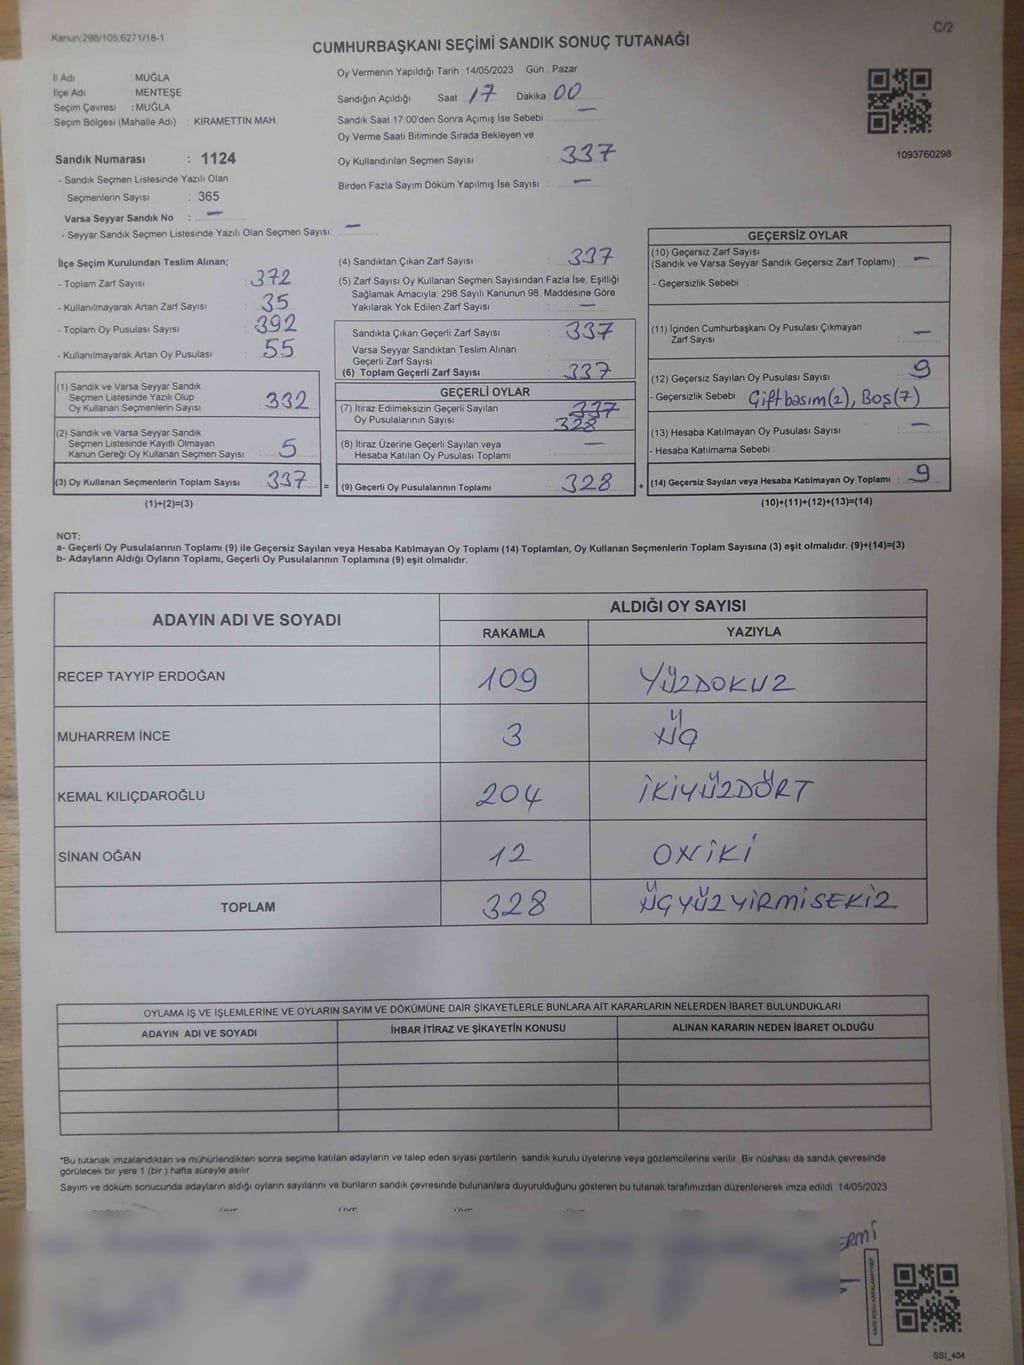 Kanun:298/105,6271/18-1
C/2
CUMHURBAŞKANI SEÇİMİ SANDIK SONUÇ TUTANAĞI
İl Adı MUĞLA
İlçe Adı MENTEŞE
Seçim Çevresi : MUĞLA
Seçim Bölgesi (Mahalle Adı) : KİRAMETTİN MAH.
Sandık Numarası : 1124
- Sandık Seçmen Listesinde Yazılı Olan
Seçmenlerin Sayısı : 365
Varsa Seyyar Sandık No : —
- Seyyar Sandık Seçmen Listesinde Yazılı Olan Seçmen Sayısı: —
Oy Vermenin Yapıldığı Tarih : 14/05/2023 Gün : Pazar
Sandığın Açıldığı Saat 17 Dakika 00
Sandık Saat 17:00'den Sonra Açımış İse Sebebi —
Oy Verme Saati Bitiminde Sırada Bekleyen ve
Oy Kullandırılan Seçmen Sayısı : 337
Birden Fazla Sayım Döküm Yapılmış İse Sayısı : —
1093760298
İlçe Seçim Kurulundan Teslim Alınan;
- Toplam Zarf Sayısı : 372
- Kullanılmayarak Artan Zarf Sayısı : 35
- Toplam Oy Pusulası Sayısı : 392
- Kullanılmayarak Artan Oy Pusulası : 55
(1) Sandık ve Varsa Seyyar Sandık
Seçmen Listesinde Yazılı Olup
Oy Kullanan Seçmenlerin Sayısı : 332
(2) Sandık ve Varsa Seyyar Sandık
Seçmen Listesinde Kayıtlı Olmayan
Kanun Gereği Oy Kullanan Seçmen Sayısı : 5
(3) Oy Kullanan Seçmenlerin Toplam Sayısı : 337 =
(1)+(2)=(3)
(4) Sandıktan Çıkan Zarf Sayısı : 337
(5) Zarf Sayısı Oy Kullanan Seçmen Sayısından Fazla İse, Eşitliği
Sağlamak Amacıyla, 298 Sayılı Kanunun 98. Maddesine Göre
Yakılarak Yok Edilen Zarf Sayısı : —
Sandıkta Çıkan Geçerli Zarf Sayısı : 337
Varsa Seyyar Sandıktan Teslim Alınan
Geçerli Zarf Sayısı
(6) Toplam Geçerli Zarf Sayısı : 337
GEÇERLİ OYLAR
(7) İtiraz Edilmeksizin Geçerli Sayılan 337
Oy Pusulalarının Sayısı : 328
(8) İtiraz Üzerine Geçerli Sayılan veya —
Hesaba Katılan Oy Pusulası Toplamı :
(9) Geçerli Oy Pusulalarının Toplamı : 328 +
GEÇERSİZ OYLAR
(10) Geçersiz Zarf Sayısı
(Sandık ve Varsa Seyyar Sandık Geçersiz Zarf Toplamı) : —
- Geçersizlik Sebebi :
(11) İçinden Cumhurbaşkanı Oy Pusulası Çıkmayan
Zarf Sayısı : —
(12) Geçersiz Sayılan Oy Pusulası Sayısı : 9
- Geçersizlik Sebebi : Çift basım(2), Boş(7)
(13) Hesaba Katılmayan Oy Pusulası Sayısı : —
- Hesaba Katılmama Sebebi :
(14) Geçersiz Sayılan veya Hesaba Katılmayan Oy Toplamı : 9
(10)+(11)+(12)+(13)=(14)
NOT:
a- Geçerli Oy Pusulalarının Toplamı (9) ile Geçersiz Sayılan veya Hesaba Katılmayan Oy Toplamı (14) Toplamları, Oy Kullanan Seçmenlerin Toplam Sayısına (3) eşit olmalıdır. (9)+(14)=(3)
b- Adayların Aldığı Oyların Toplamı, Geçerli Oy Pusulalarının Toplamına (9) eşit olmalıdır.
ADAYIN ADI VE SOYADI
ALDIĞI OY SAYISI
RAKAMLA YAZIYLA
RECEP TAYYİP ERDOĞAN 109 YÜZDOKUZ
MUHARREM İNCE 3 ÜÇ
KEMAL KILIÇDAROĞLU 204 İKİYÜZDÖRT
SİNAN OĞAN 12 ONİKİ
TOPLAM 328 ÜÇYÜZYİRMİSEKİZ
OYLAMA İŞ VE İŞLEMLERİNE VE OYLARIN SAYIM VE DÖKÜMÜNE DAİR ŞİKAYETLERLE BUNLARA AİT KARARLARIN NELERDEN İBARET BULUNDUKLARI
ADAYIN ADI VE SOYADI İHBAR İTİRAZ VE ŞİKAYETİN KONUSU ALINAN KARARIN NEDEN İBARET OLDUĞU
*Bu tutanak imzalandıktan ve mühürlendikten sonra seçime katılan adayların ve talep eden siyasi partilerin sandık kurulu üyelerine veya gözlemcilerine verilir. Bir nüshası da sandık çevresinde
görülecek bir yere 1 (bir ) hafta süreyle asılır.
Sayım ve döküm sonucunda adayların aldığı oyların sayılarını ve bunların sandık çevresinde bulunanlara duyurulduğunu gösteren bu tutanak tarafımızdan düzenlenerek imza edildi. 14/05/2023
SSI_404